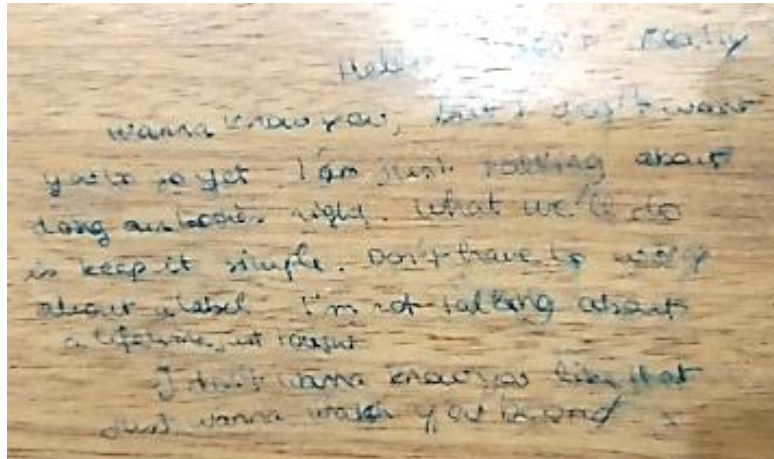 Hello really
wanna know you, but I don't want
yet I am just talking about
doing right. What we'll do
is keep it simple. Don't have to worry
about a label I'm not talking about
a lifetime,
I don't wanna know you like that
Just wanna watch you